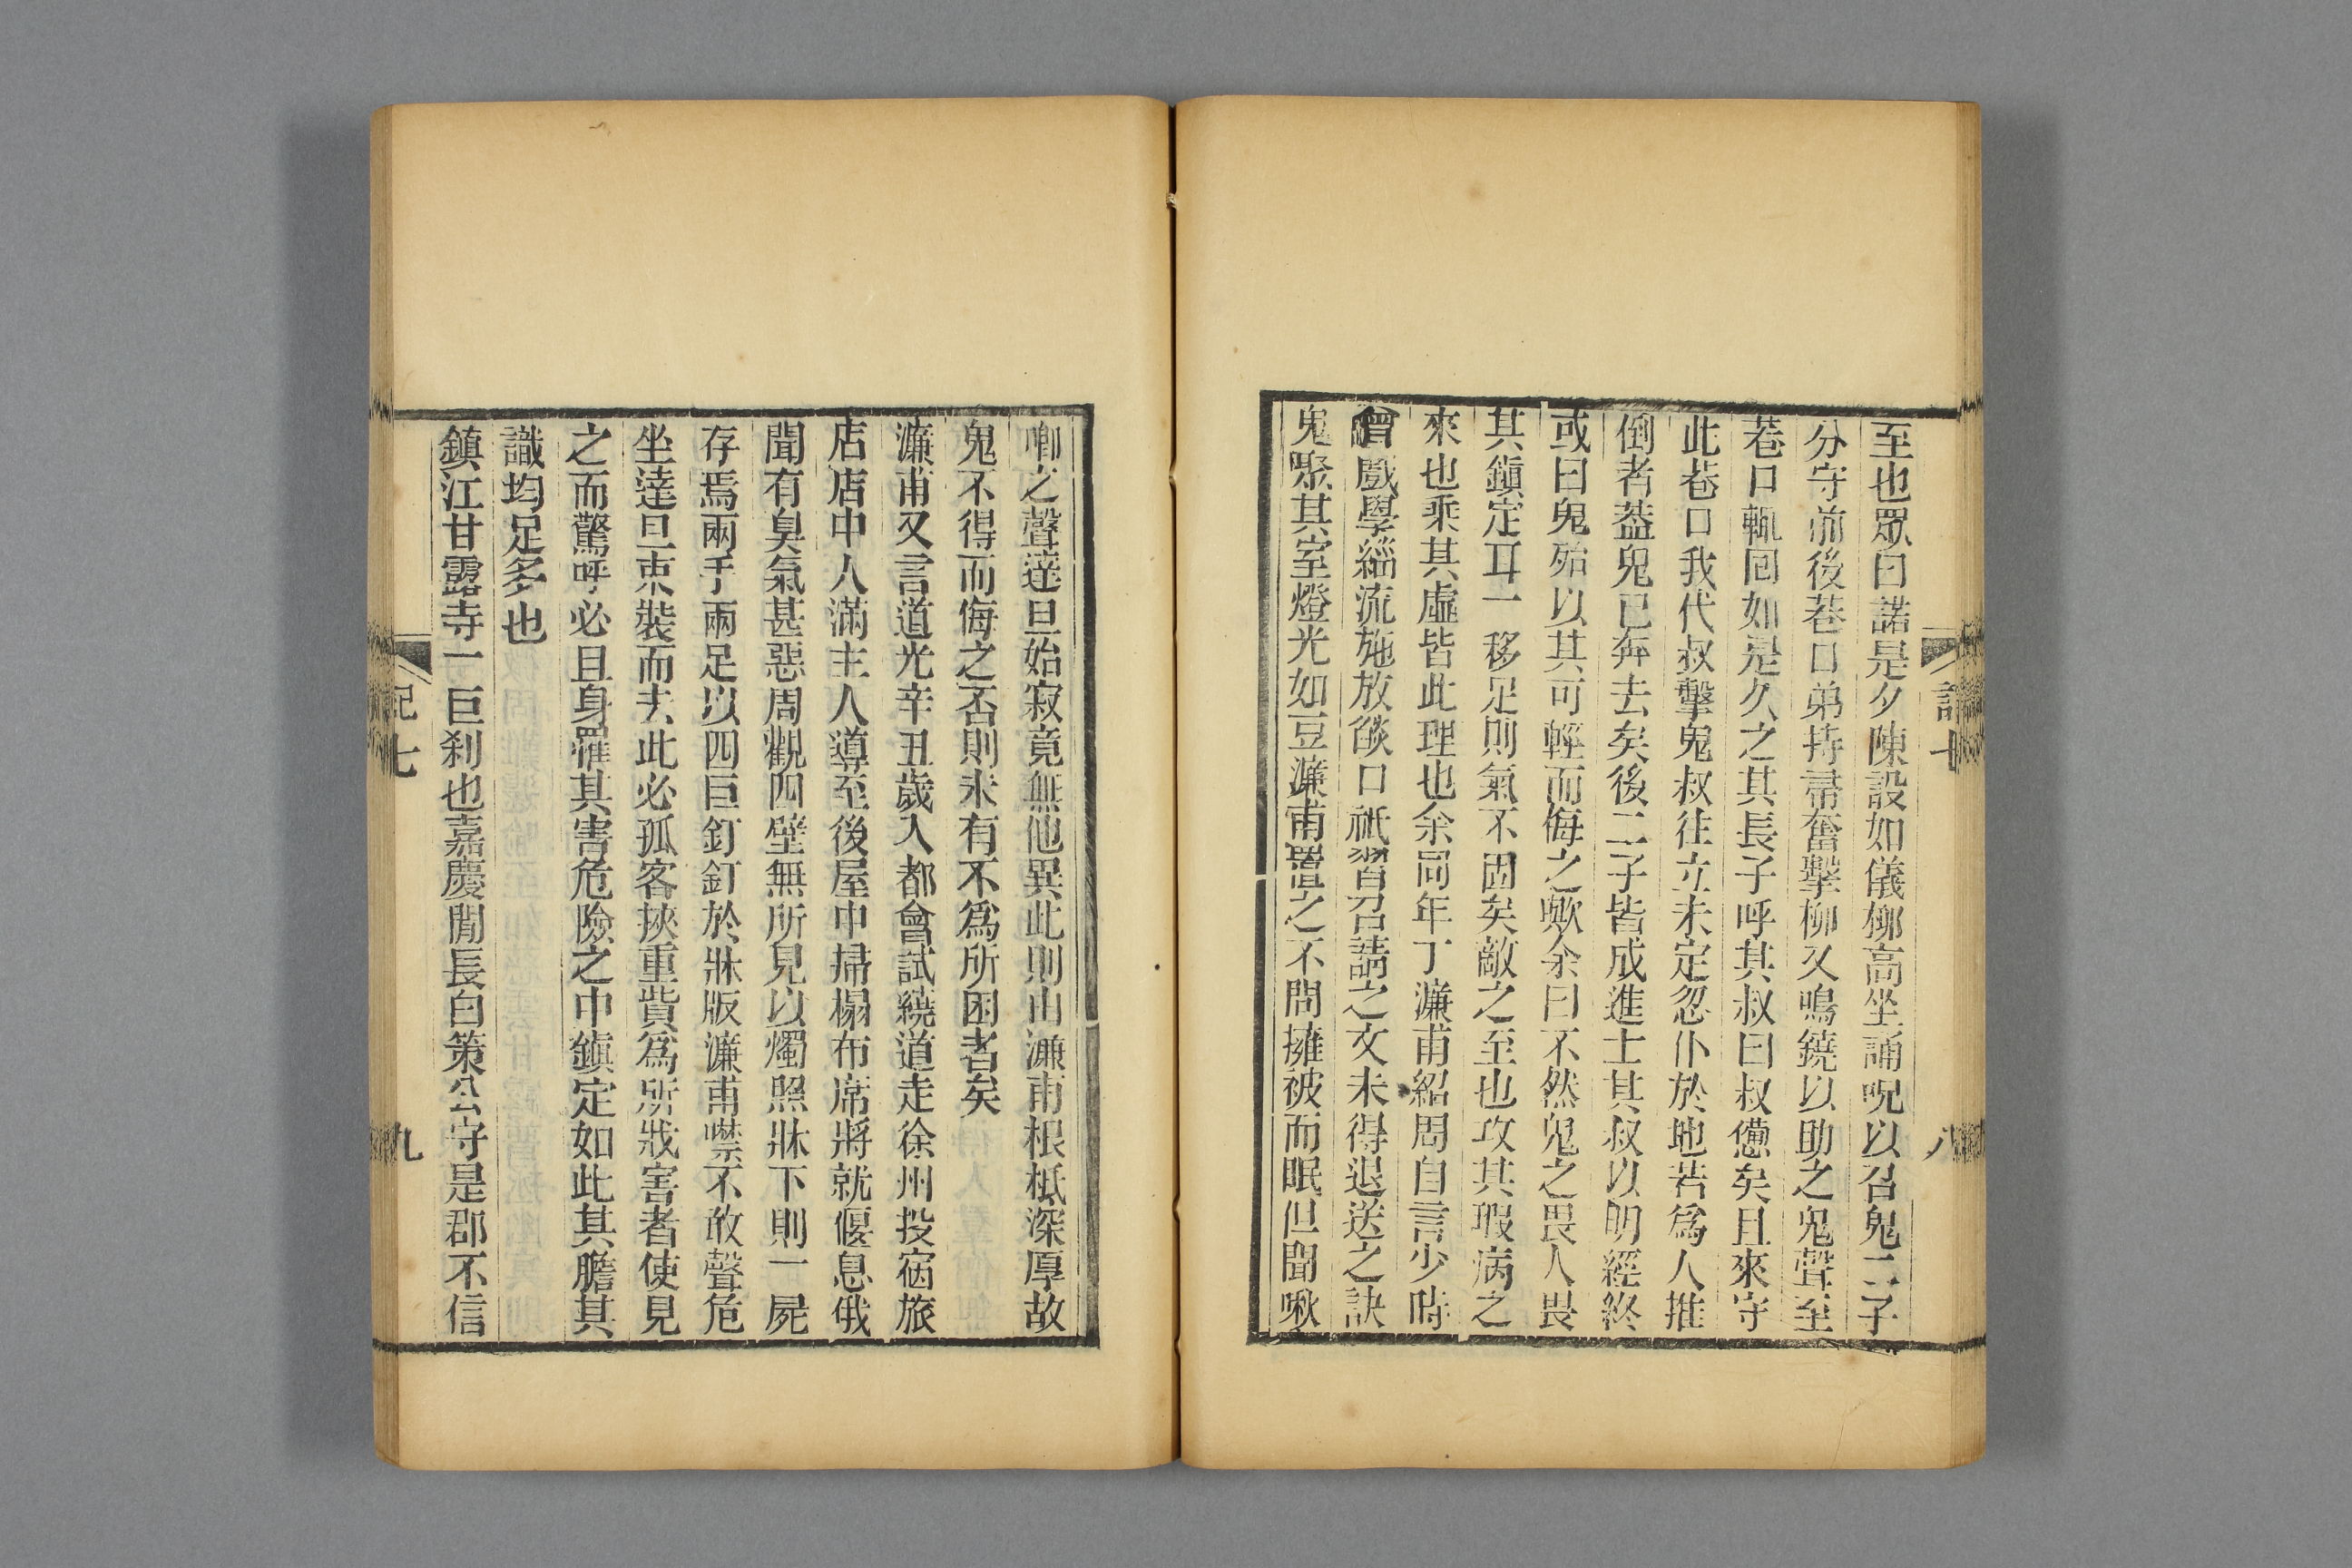 至也眾曰諾是夕陳設如儀柳高坐誦呪以召鬼二子
分守前後巷口弟持帚奮擊柳又鳴鐃以助之鬼聲至
巷口輒回如是久之其長子呼其叔曰叔憊矣且來守
此巷口我代叔擊鬼叔往立未定忽仆於地若爲人推
倒者葢鬼已奔去矣後二子皆成進士其叔以明經終
或曰鬼殆以其可輕而侮之歟余曰不然鬼之畏人畏
其鎭定耳一移足則氣不固矣敵之至也攻其瑕病之
來也乘其虛皆此理也余同年丁濂甫紹周自言少時
曾戲學緇流施放燄口祇習召請之文未得退送之訣
鬼聚其室燈光如豆濂甫置之不問擁被而眠但聞啾
八
唧之聲達旦始寂竟無他異此則由濂甫根柢深厚故
鬼不得而侮之否則未有不爲所困者矣
濂甫又言道光辛丑歲入都會試繞道走徐州投宿旅
店店中人滿主人導至後屋中掃榻布席將就偃息俄
聞有臭氣甚惡周觀四壁無所見以燭照牀下則一屍
存焉兩手兩足以四巨釘釘於牀版濂甫噤不敢聲危
坐達旦束裝而去此必孤客挾重貲爲所戕害者使見
之而驚呼必且身罹其害危險之中鎭定如此其膽其
識均足多也
鎭江甘露寺一巨刹也嘉慶閒長白策公守是郡不信
記七
九